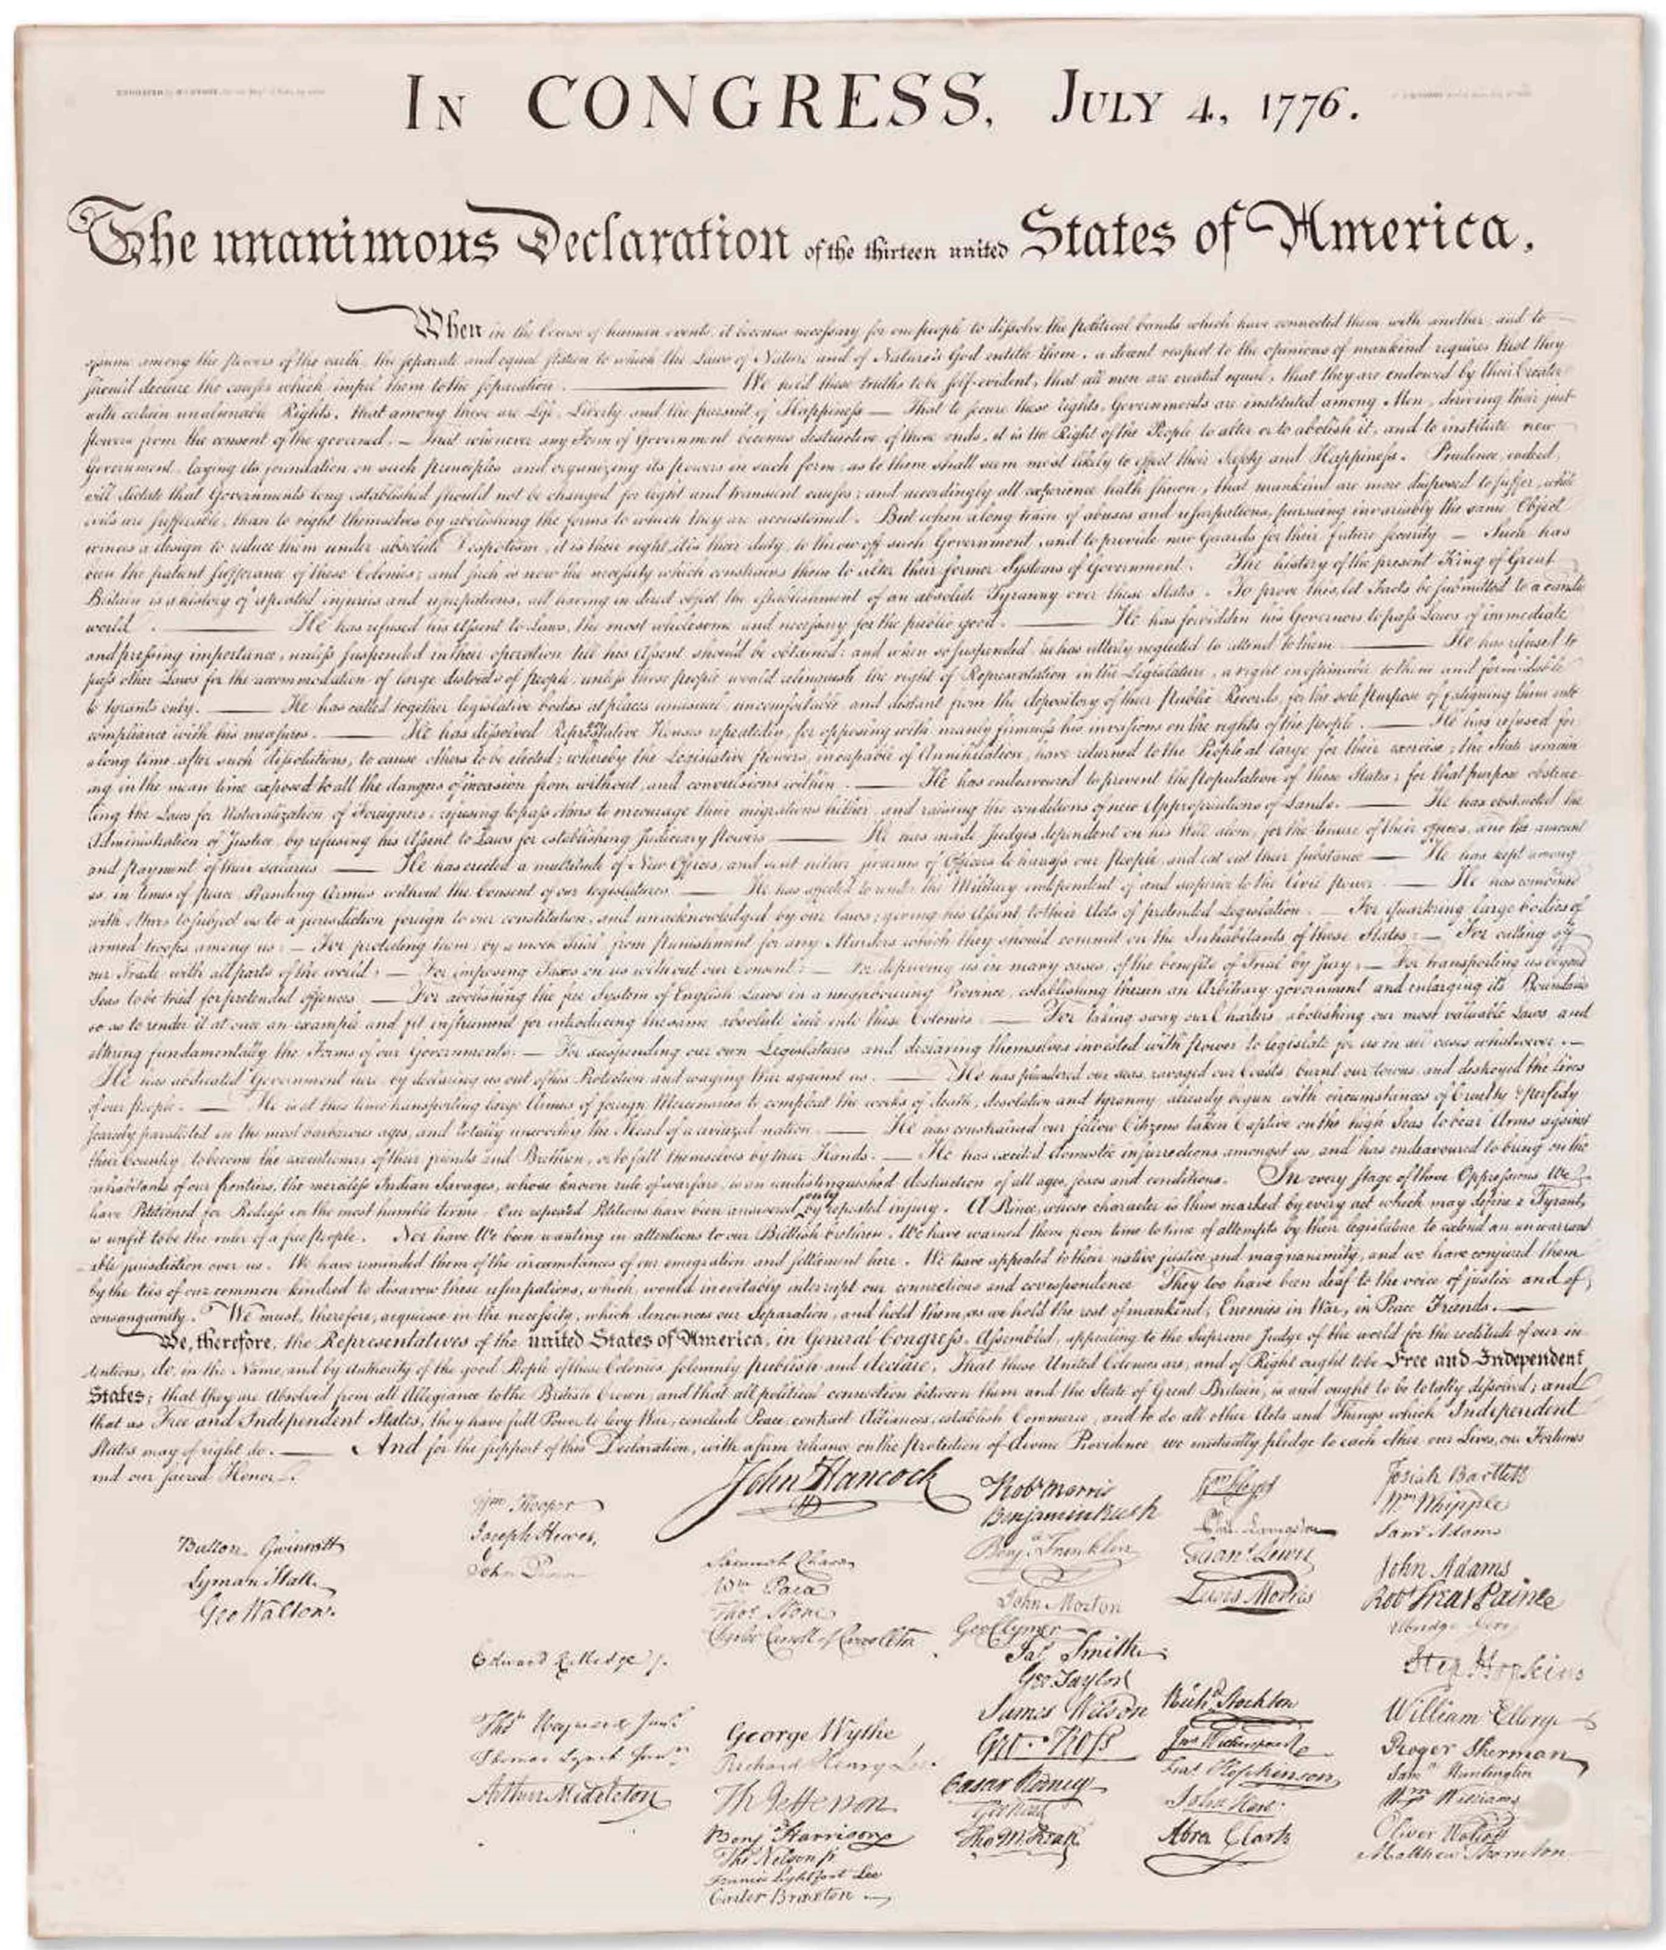 IN CONGRESS, JULY 4, 1776.
The unanimous Declaration of the thirteen united States of America,
When in the Course of human events, it becomes necessary for one people to dissolve the political bands which have connected them with another, and to
assume among the powers of the earth, the separate and equal station to which the Laws of Nature and of Nature's God entitle them, a decent respect to the opinions of mankind requires that they
should declare the causes which impel them to the separation. We hold these truths to be self-evident, that all men are created equal, that they are endowed by their Creator
with certain unalienable Rights, that among these are Life, Liberty and the pursuit of Happiness — That to secure these rights, Governments are instituted among Men, deriving their just
powers from the consent of the governed, — That whenever any Form of Government becomes destructive of these ends, it is the Right of the People to alter or to abolish it, and to institute new
Government, laying its foundation on such principles and organizing its powers in such form, as to them shall seem most likely to effect their Safety and Happiness. Prudence, indeed,
will dictate that Governments long established should not be changed for light and transient causes; and accordingly all experience hath shewn, that mankind are more disposed to suffer, while
evils are sufferable, than to right themselves by abolishing the forms to which they are accustomed. But when a long train of abuses and usurpations, pursuing invariably the same Object
evinces a design to reduce them under absolute Despotism, it is their right, it is their duty, to throw off such Government, and to provide new Guards for their future security. — Such has
been the patient sufferance of these Colonies; and such is now the necessity which constrains them to alter their former Systems of Government. The history of the present King of Great
Britain is a history of repeated injuries and usurpations, all having in direct object the establishment of an absolute Tyranny over these States. To prove this, let Facts be submitted to a candid
world. — He has refused his Assent to Laws, the most wholesome and necessary for the public good. — He has forbidden his Governors to pass Laws of immediate
and pressing importance, unless suspended in their operation till his Assent should be obtained; and when so suspended, he has utterly neglected to attend to them. — He has refused to
pass other Laws for the accommodation of large districts of people, unless those people would relinquish the right of Representation in the Legislature, a right inestimable to them and formidable
to tyrants only. — He has called together legislative bodies at places unusual, uncomfortable, and distant from the depository of their Public Records, for the sole purpose of fatiguing them into
compliance with his measures. — He has dissolved Representative Houses repeatedly, for opposing with manly firmness his invasions on the rights of the people. — He has refused for
a long time, after such dissolutions, to cause others to be elected; whereby the Legislative powers, incapable of Annihilation, have returned to the People at large for their exercise; the State remain
ing in the mean time exposed to all the dangers of invasion from without, and convulsions within. — He has endeavoured to prevent the population of these States; for that purpose obstruc
ting the Laws for Naturalization of Foreigners; refusing to pass others to encourage their migrations hither, and raising the conditions of new Appropriations of Lands. — He has obstructed the
Administration of Justice, by refusing his Assent to Laws for establishing Judiciary powers — He has made Judges dependent on his Will alone, for the tenure of their offices, and the amount
and payment of their salaries. — He has erected a multitude of New Offices, and sent hither swarms of Officers to harrass our People, and eat out their substance — He has kept among
us, in times of peace, Standing Armies without the Consent of our legislatures. — He has affected to render the Military independent of and superior to the Civil power. — He has combined
with others to subject us to a jurisdiction foreign to our constitution, and unacknowledged by our laws; giving his Assent to their Acts of pretended Legislation: — For Quartering large bodies of
armed troops among us: — For protecting them, by a mock Trial, from punishment for any Murders which they should commit on the Inhabitants of these States: — For cutting off
our Trade with all parts of the world: — For imposing Taxes on us without our Consent: — For depriving us in many cases, of the benefits of Trial by Jury: — For transporting us beyond
Seas to be tried for pretended offences — For abolishing the free System of English Laws in a neighbouring Province, establishing therein an Arbitrary government, and enlarging its Boundaries
so as to render it at once an example and fit instrument for introducing the same absolute rule into these Colonies: — For taking away our Charters, abolishing our most valuable Laws, and
altering fundamentally the Forms of our Governments: — For suspending our own Legislatures, and declaring themselves invested with power to legislate for us in all cases whatsoever. —
He has abdicated Government here, by declaring us out of his Protection and waging War against us. — He has plundered our seas, ravaged our Coasts, burnt our towns, and destroyed the lives
of our people. — He is at this time transporting large Armies of foreign Mercenaries to compleat the works of death, desolation and tyranny, already begun with circumstances of Cruelty & perfidy
scarcely paralleled in the most barbarous ages, and totally unworthy the Head of a civilized nation. — He has constrained our fellow Citizens taken Captive on the high Seas to bear Arms against
their Country, to become the executioners of their friends and Brethren, or to fall themselves by their Hands. — He has excited domestic insurrections amongst us, and has endeavoured to bring on the
inhabitants of our frontiers, the merciless Indian Savages, whose known rule of warfare, is an undistinguished destruction of all ages, sexes and conditions. In every stage of these Oppressions We
have Petitioned for Redress in the most humble terms: Our repeated Petitions have been answered only by repeated injury. A Prince, whose character is thus marked by every act which may define a Tyrant,
is unfit to be the ruler of a free people. Nor have We been wanting in attentions to our Brittish brethren. We have warned them from time to time of attempts by their legislature to extend an unwarrant
able jurisdiction over us. We have reminded them of the circumstances of our emigration and settlement here. We have appealed to their native justice and magnanimity, and we have conjured them
by the ties of our common kindred to disavow these usurpations, which, would inevitably interrupt our connections and correspondence. They too have been deaf to the voice of justice and of
consanguinity. We must, therefore, acquiesce in the necessity, which denounces our Separation, and hold them, as we hold the rest of mankind, Enemies in War, in Peace Friends. —
We, therefore, the Representatives of the united States of America, in General Congress, Assembled, appealing to the Supreme Judge of the world for the rectitude of our in
tentions, do, in the Name, and by Authority of the good People of these Colonies, solemnly publish and declare, That these United Colonies are, and of Right ought to be Free and Independent
States; that they are Absolved from all Allegiance to the British Crown, and that all political connection between them and the State of Great Britain, is and ought to be totally dissolved; and
that as Free and Independent States, they have full Power to levy War, conclude Peace, contract Alliances, establish Commerce, and to do all other Acts and Things which Independent
States may of right do. — And for the support of this Declaration, with a firm reliance on the protection of divine Providence, we mutually pledge to each other our Lives, our Fortunes
and our sacred Honor.
Button Gwinnett
Lyman Hall
Geo Walton.
Wm Hooper
Joseph Hewes,
John Penn
Edward Rutledge
Thos Heyward Junr
Thomas Lynch Junr
Arthur Middleton
John Hancock
Samuel Chase
Wm Paca
Thos Stone
Charles Carroll of Carrollton
George Wythe
Richard Henry Lee
Th Jefferson
Benj Harrison
Thos Nelson jr
Francis Lightfoot Lee
Carter Braxton
Robt Morris
Benjamin Rush
Benja Franklin
John Morton
Geo Clymer
Jas Smith
Geo Taylor
James Wilson
Geo. Ross
Caesar Rodney
Geo Read
Tho M:Kean
Wm Floyd
Phil. Livingston
Frans Lewis
Lewis Morris
Richd Stockton
Jno Witherspoon
Fras Hopkinson
John Hart
Abra Clark
Josiah Bartlett
Wm Whipple
Saml Adams
John Adams
Robt Treat Paine
Elbridge Gerry
Step Hopkins
William Ellery
Roger Sherman
Saml Huntington
Wm Williams
Oliver Wolcott
Matthew Thornton